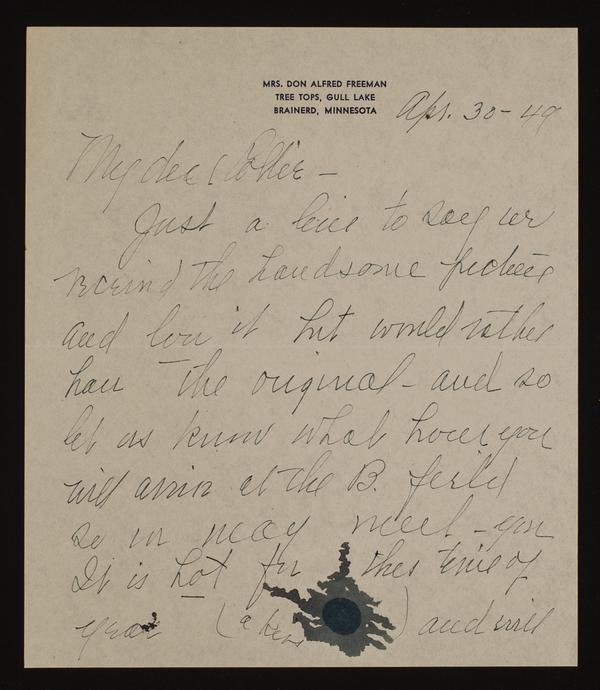 MRS. DON ALFRED FREEMAN
TREE TOPS, GULL LAKE
BRAINERD, MINNESOTA
Apr. 30 - 49
My dear Pollie -
Just a line to say we
received the handsome picture
and love it but would rather
have the original - and so
let us know what hour you
will arrive at the B. field
so we may meet - you
It is hot for this time of
year (a ) and will